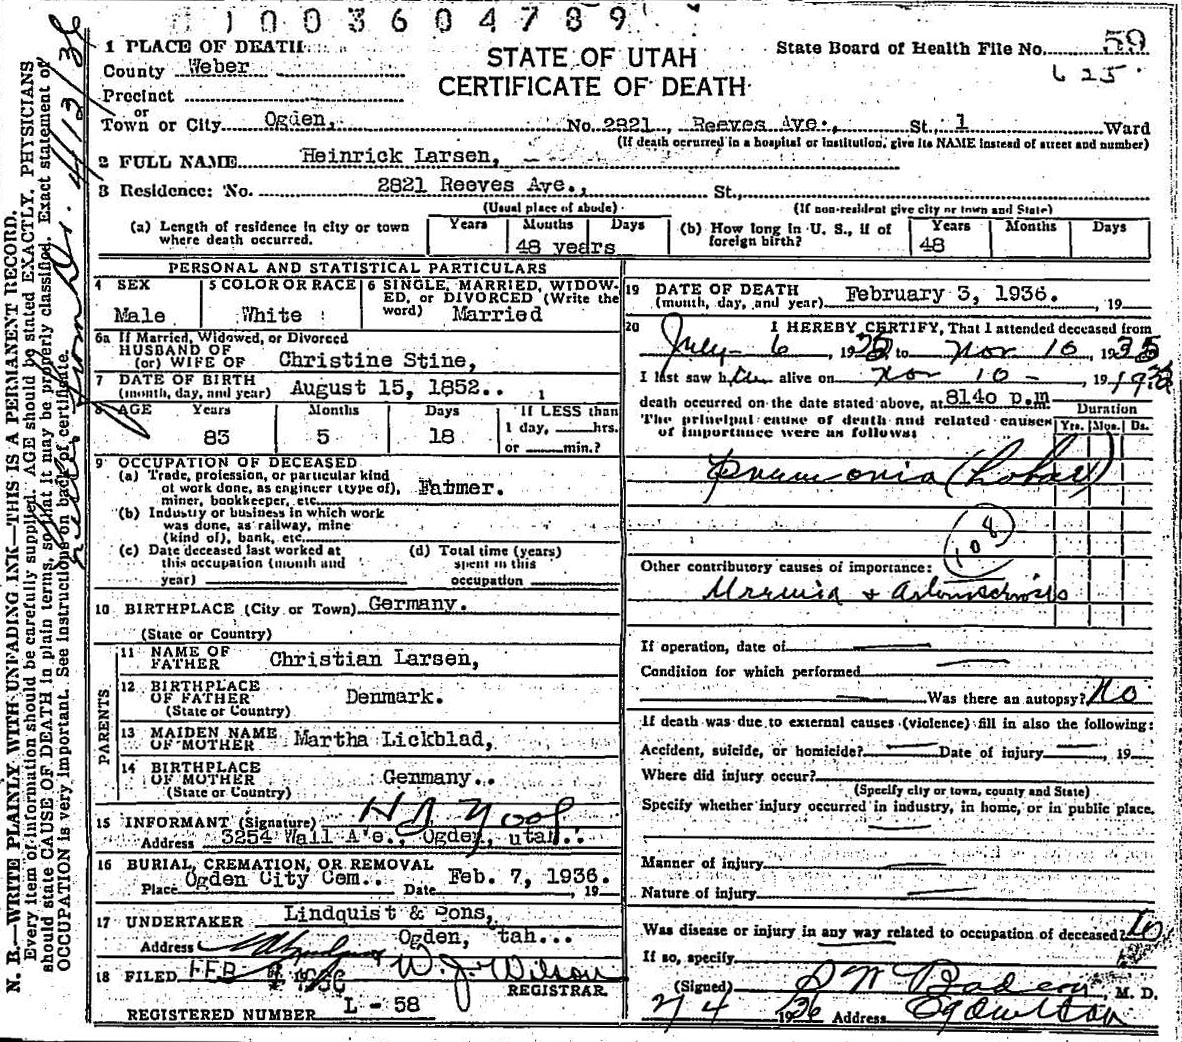 1003604789
1 PLACE OF DEATH
STATE OF UTAH
CERTIFICATE OF DEATH
State Board of Health File No. 59
625
County Weber
Precinct
or
Town or City Ogden, No. 2821 Reeves Ave., St, 1 Ward
(If death occurred in a hospital or institution, give its NAME instead of street and number)
2 FULL NAME Heinrick Larsen,
3 Residence: No. 2821 Reeves Ave., St,
(Usual place of abode) (If non-resident give city or town and State)
(a) Length of residence in city or town where death occurred. Years Months Days 48 years
(b) How long in U. S., if of foreign birth? Years Months Days 48
PERSONAL AND STATISTICAL PARTICULARS
4 SEX Male
5 COLOR OR RACE White
6 SINGLE, MARRIED, WIDOWED, or DIVORCED (Write the word) Married
6a If Married, Widowed, or Divorced
HUSBAND OF
(or) WIFE OF Christine Stine,
7 DATE OF BIRTH
(month, day, and year) August 15, 1852..
8 AGE Years Months Days If LESS than
83 5 18 1 day, hrs.
or min.?
9 OCCUPATION OF DECEASED
(a) Trade, profession, or particular kind
of work done, as engineer (type of),
miner, bookkeeper, etc. Fatmer.
(b) Industry or business in which work
was done, as railway, mine
(kind of), bank, etc.
(c) Date deceased last worked at
this occupation (month and
year)
(d) Total time (years)
spent in this
occupation
10 BIRTHPLACE (City or Town) Germany.
(State or Country)
PARENTS
11 NAME OF
FATHER Christian Larsen,
12 BIRTHPLACE
OF FATHER Denmark.
(State or Country)
13 MAIDEN NAME
OF MOTHER Martha Lickblad,
14 BIRTHPLACE
OF MOTHER Genmany..
(State or Country)
15 INFORMANT (Signature)
Address 3254 Wall A e., Ogden, utah.
16 BURIAL, CREMATION, OR REMOVAL
Place Ogden City Cem.. Date Feb. 7, 1936. 19
17 UNDERTAKER Lindquist & Sons,
Address Ogden, tah...
18 FILED FEB 4 1936 W. J. Wilson
REGISTRAR
REGISTERED NUMBER L - 58
19 DATE OF DEATH
(month, day, and year) February 3, 1936. , 19
20 I HEREBY CERTIFY, That I attended deceased from
July 6, 1935, to Nov 10, 1935
I last saw h alive on Nov 10 - , 19
death occurred on the date stated above, at 8140 p.m
The principal cause of death and related causes
of importance were as follows:
Duration
Yrs. Mos. Ds.
Pneumonia (Lobar)
108
Other contributory causes of importance:
Uremia + Arteriosclerosis
If operation, date of
Condition for which performed
Was there an autopsy? No
If death was due to external causes (violence) fill in also the following:
Accident, suicide, or homicide? Date of injury , 19
Where did injury occur?
(Specify city or town, county and State)
Specify whether injury occurred in industry, in home, or in public place.
Manner of injury
Nature of injury
Was disease or injury in any way related to occupation of deceased? No
If so, specify
(Signed) , M. D.
2/4 1936 Address Ogden Utah
N. B.—WRITE PLAINLY WITH UNFADING INK—THIS IS A PERMANENT RECORD.
Every item of information should be carefully supplied. AGE should be stated EXACTLY. PHYSICIANS
should state CAUSE OF DEATH in plain terms, so that it may be properly classified. Exact statement of
OCCUPATION is very important. See instructions on back of certificate.
4/13/36